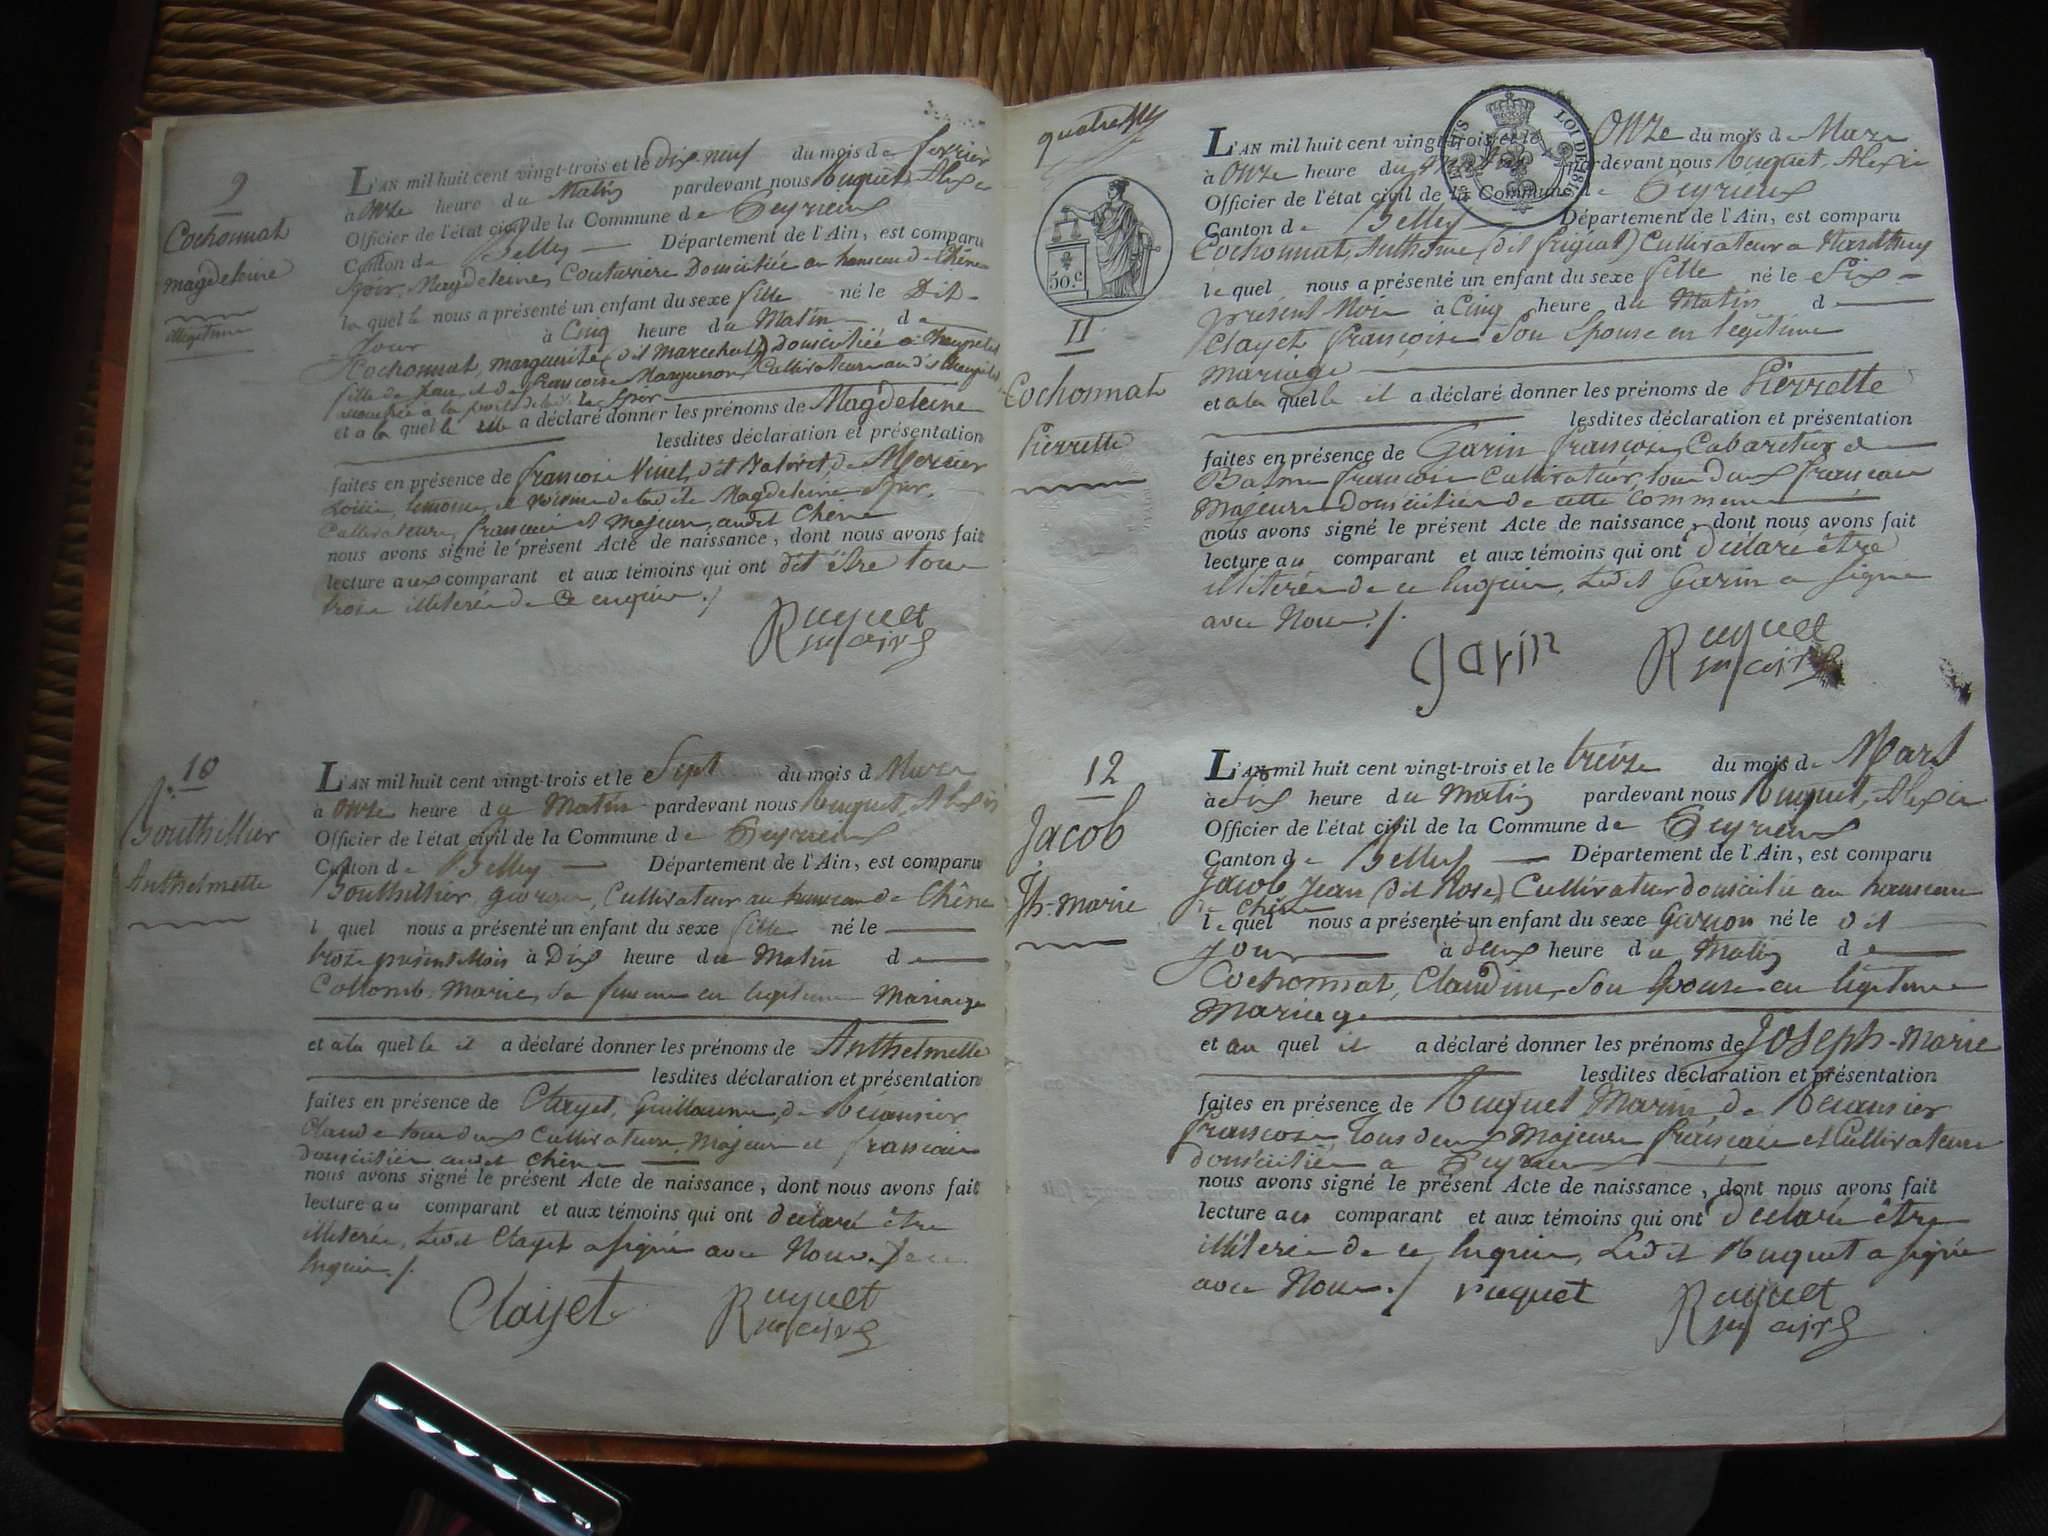 9
Cochonnat
magdeleine
illégitime
L'AN mil huit cent vingt-trois et le dix neuf du mois de fevrier
à onze heure du Matin pardevant nous Ruquet, Alexis
Officier de l'état civil de la Commune de Ceyzerieux
Canton de Belley Département de l'Ain, est comparu
Spir, Magdeleine, Couturiere Domiciliée au hameau de Chêne
la quelle nous a présenté un enfant du sexe fille né le Dit
Jour à Cinq heure du Matin de
Cochonnat, marguerite (dit Marechal) domiciliée à
fille de Jean et de françoise Cultivateurs
et a la quelle elle a déclaré donner les prénoms de Magdeleine
lesdites déclaration et présentation
faites en présence de françois Vinet, dit de Mercier
Louis, temoins, et voisins de ladite Magdeleine Spir,
Cultivateurs, francais et Majeurs, audit Chêne
nous avons signé le présent Acte de naissance, dont nous avons fait
lecture aux comparant et aux témoins qui ont dit être tous
trois illiterés de ce enquis ./
Ruquet
maire
10
Bouthillier
Anthelmette
L'AN mil huit cent vingt-trois et le Sept du mois d Mars
à onze heure du Matin pardevant nous Ruquet, Alexis
Officier de l'état civil de la Commune de Ceyzerieux
Canton de Belley Département de l'Ain, est comparu
Bouthillier, George, Cultivateur au hameau de Chêne
l quel nous a présenté un enfant du sexe fille né le
présent Mois à Dix heure du Matin d
Collomb, Marie, sa femme en legitime Mariage
et a la quelle il a déclaré donner les prénoms de Anthelmette
lesdites déclaration et présentation
faites en présence de Clayet, Guillaume, de
Claude tous deux Cultivateurs, Majeurs et francais
domiciliés audit Chêne
nous avons signé le présent Acte de naissance, dont nous avons fait
lecture au comparant et aux témoins qui ont declaré être
illiterés, Ledit Clayet a signé avec Nous de ce
enquis ./
Clayet Ruquet
maire
quatre
50.c
TIMBRE LOI DE 1816
11
Cochonnat
Pierrette
L'AN mil huit cent vingt-trois et le Onze du mois de Mars
à Onze heure du matin pardevant nous Ruquet, Alexis
Officier de l'état civil de la Commune de Ceyzerieux
Canton de Belley Département de l'Ain, est comparu
Cochonnat, Anthelme, (dit frigiat) Cultivateur a
le quel nous a présenté un enfant du sexe fille né le Six
présent Mois à Cinq heure du Matin de
Clayet, françoise Son Epouse en legitime
Mariage
et a la quelle il a déclaré donner les prénoms de Pierrette
lesdites déclaration et présentation
faites en présence de Garin françois, Cabaretier, de
françois Cultivateur, tous deux français
Majeurs domiciliés de cette Commune
nous avons signé le présent Acte de naissance, dont nous avons fait
lecture au comparant et aux témoins qui ont déclaré être
illiterés de ce enquis, Ledit Garin a signé
avec Nous ./.
garin Ruquet
maire
12
Jacob
Jh-marie
L'AN mil huit cent vingt-trois et le treize du mois de Mars
à dix heure du Matin pardevant nous Ruquet, Alexis
Officier de l'état civil de la Commune de Ceyzerieux
Canton de Belley Département de l'Ain, est comparu
Jacob, Jean (dit Rose) Cultivateur domicilié au hameau
de Chêne
le quel nous a présenté un enfant du sexe Garçon né le dit
Jour à deux heure du Matin d
Cochonnat, Claudine, Son Epouse en legitime
Mariage
et au quel il a déclaré donner les prénoms de Joseph-Marie
lesdites déclaration et présentation
faites en présence de Ruquet Marin, de
françois, tous deux Majeurs français et Cultivateurs
domiciliés a Ceyzerieux
nous avons signé le présent Acte de naissance, dont nous avons fait
lecture au comparant et aux témoins qui ont declaré être
illiterés de ce enquis, Ledit Ruquet a signé
avec Nous ./ ruquet Ruquet
maire